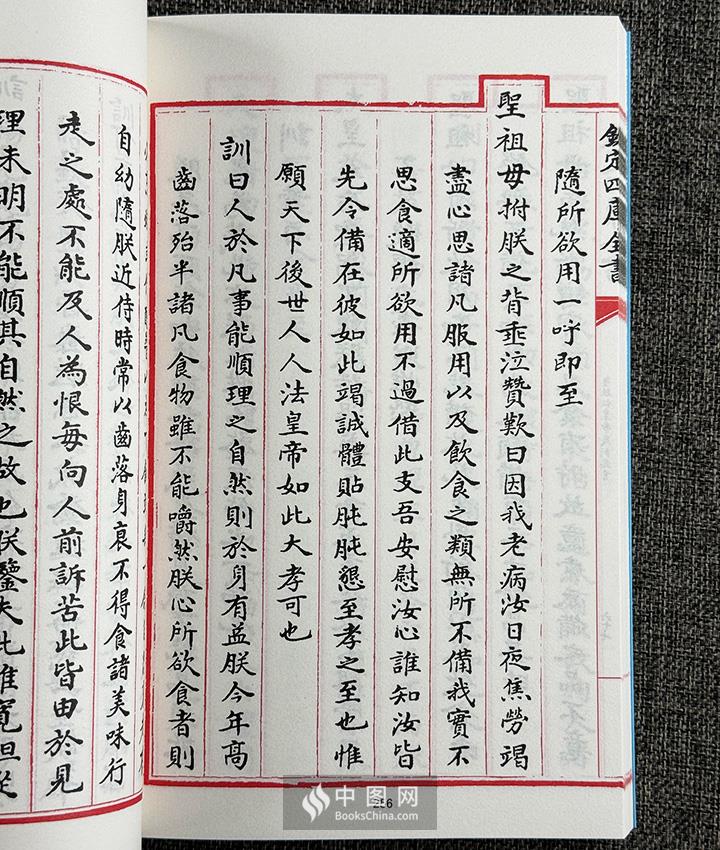 欽定四庫全書
隨所欲用一呼即至
聖祖母拊朕之背垂泣贊歎曰因我老病汝日夜焦勞竭
盡心思諸凡服用以及飲食之類無所不備我實不
思食適所欲用不過借此支吾安慰汝心誰知汝皆
先令備在彼如此竭誠體貼肫肫懇至孝之至也惟
願天下後世人人法皇帝如此大孝可也
訓曰人於凡事能順理之自然則於身有益朕今年高
齒落殆半諸凡食物雖不能嚼然朕心所欲食者則
自幼隨朕近侍時常以齒落身衰不得食諸美味行
走之處不能及人為恨每向人前訴苦此皆由於見
理未明不能順其自然之故也朕鑒夫此惟寬坦從
256
中图网
BooksChina.com